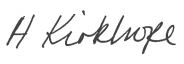 H Kirkhope